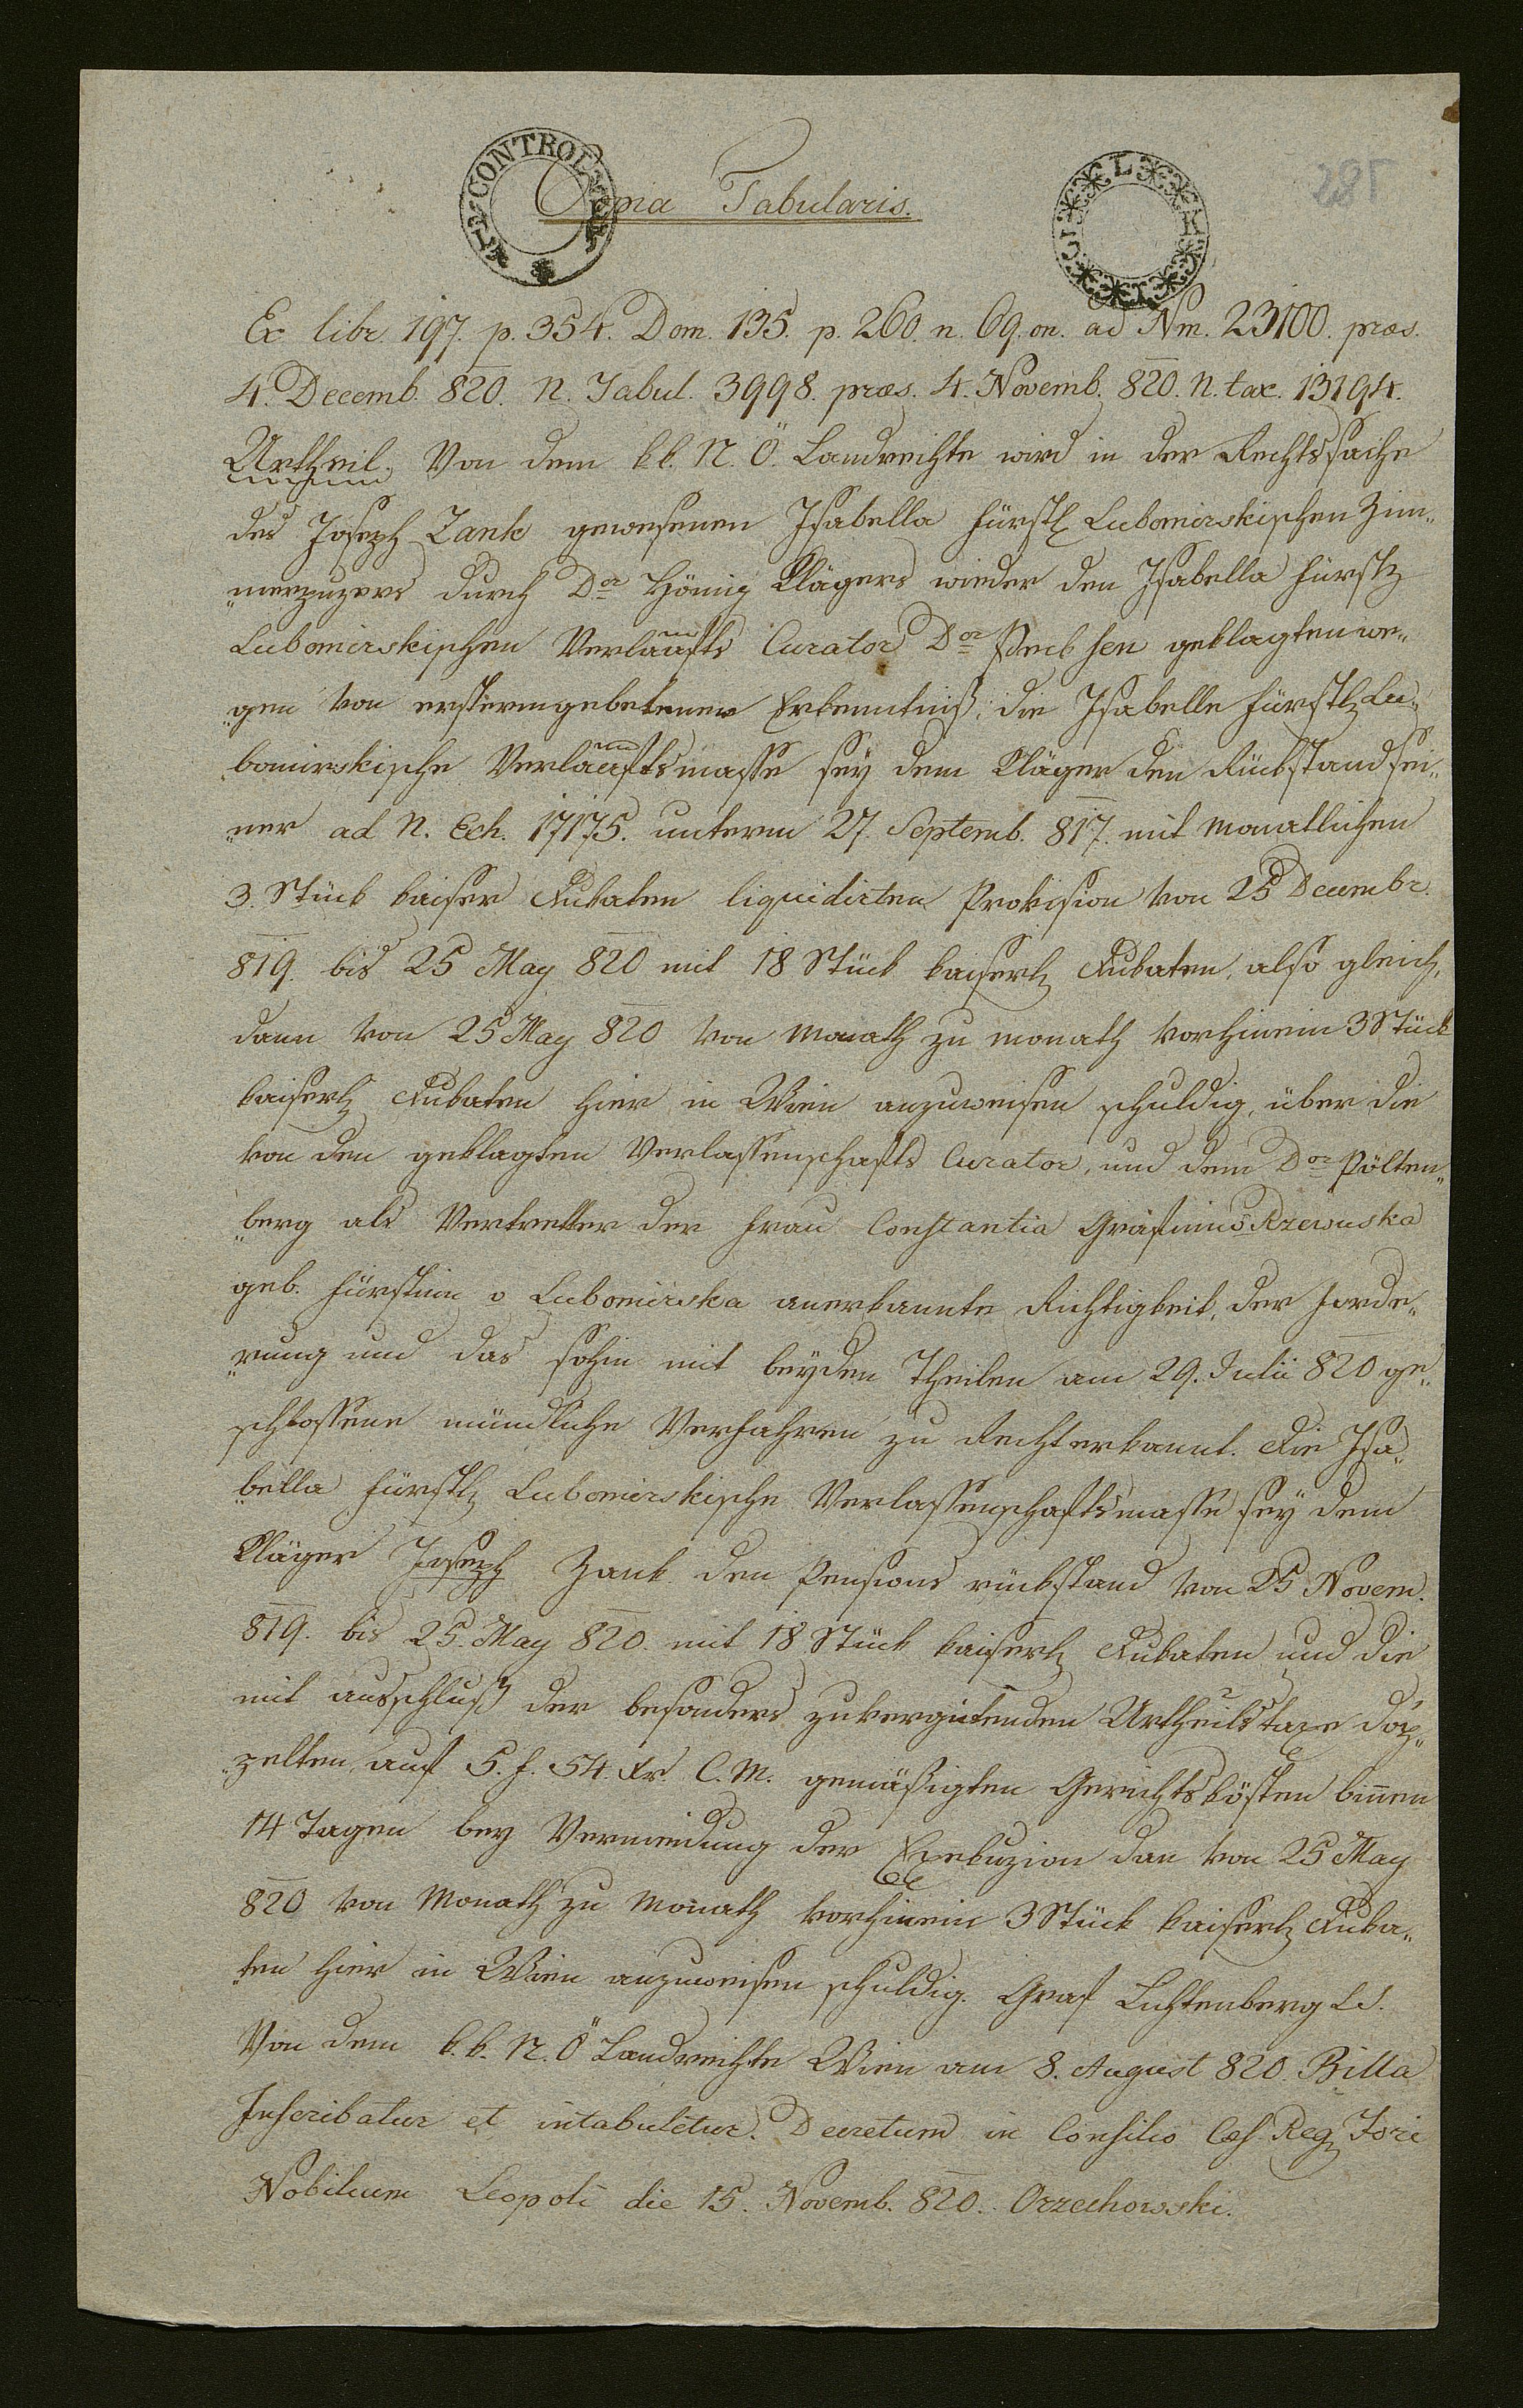 CONTROL
Copia Tabularis.
Ex libr. 197. p. 354. Dom. 135. p. 260. n. 69. on. ad Nm. 23100. præs.
4. Decemb. 820. N. Tabul. 3998. præs. 4. Novemb. 820. N. tax. 13194.
Urtheil. Von dem kk. N. Ö. Landrechte wird in der Rechtssache
des Joseph Zank gewesenen Isabella fürstl Lubomirskischen Zim„
„merputzers durch Dor Hönig Klägers wieder den Isabella fürstl
Lubomirskischen Verlaßfts Curator Dor geklagten we„
„gen von ersterem gebetenen Erkenntniß, die Isabella fürstl Lu„
bomirskische Verlaßftsmasse sey dem Kläger den Rückstand sei„
„ner ad N. Exh. 17175. unterm 27. Septemb. 817. mit monatlichen
3. Stück kaiser Dukaten liquidirten Provision von 25 Decembr.
819. bis 25 May 820 mit 18 Stück kaiserl Dukaten, also gleich,
dann von 25 May 820 von Monath zu monath vorhinein 3 Stück
kaiserl Dukaten hier in Wien anzuweisen schuldig, über die
von den geklagten Verlassenschafts Curator, und dem Dor Pölten„
„berg als Vertretter der Frau Constantia Gräfinn v Rzewuska
geb. Fürstinn v Lubomirska anerkannte Richtigkeit, der Forde„
„rung und das sohin mit beyden Theilen am 29. Julii 820 ge„
schlossene mündliche Verfahren zu Recht erkannt. Die Isa„
„bella fürstl Lubomirskische Verlassenschaftsmasse sey dem
Kläger Joseph Zank den Pensions rückstand von 25 Novem.
819. bis 25. May 820. mit 18 Stück kaiserl Dukaten und die
mit ausschluß der besonders zuvergütenden Urtheilstaxe
auf 5. f. 54. Xr. C. M. gemäßigten Gerichtskösten binnen
14 Tagen bey Vermeidung der Exekuzion dan von 25 May
820 von Monath zu Monath vorhinein 3 Stück kaiserl Duka„
„ten hier in Wien anzuweisen schuldig. Graf Lichtenberg LS.
Von dem k.k. N. Ö Landrechte Wien am 8. August 820. Billa
Inscribatur et intabuletur. Decretum in Consilio Cæs. Reg Fori
Nobilium Leopoli die 15. Novemb. 820. Orzechowski.